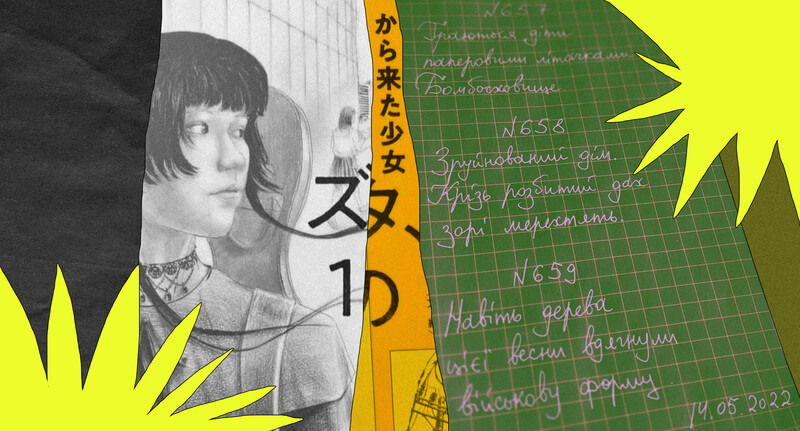 から来た少女
ズタ、
1の
№657
Граються діти
паперовими літачками.
Бомбосховище
№658
Зруйнований дім.
Крізь розбитий дах
зорі мерехтять.
№659
Навіть дерева
цієї весни вдягнули
військову форму
14.05.2022